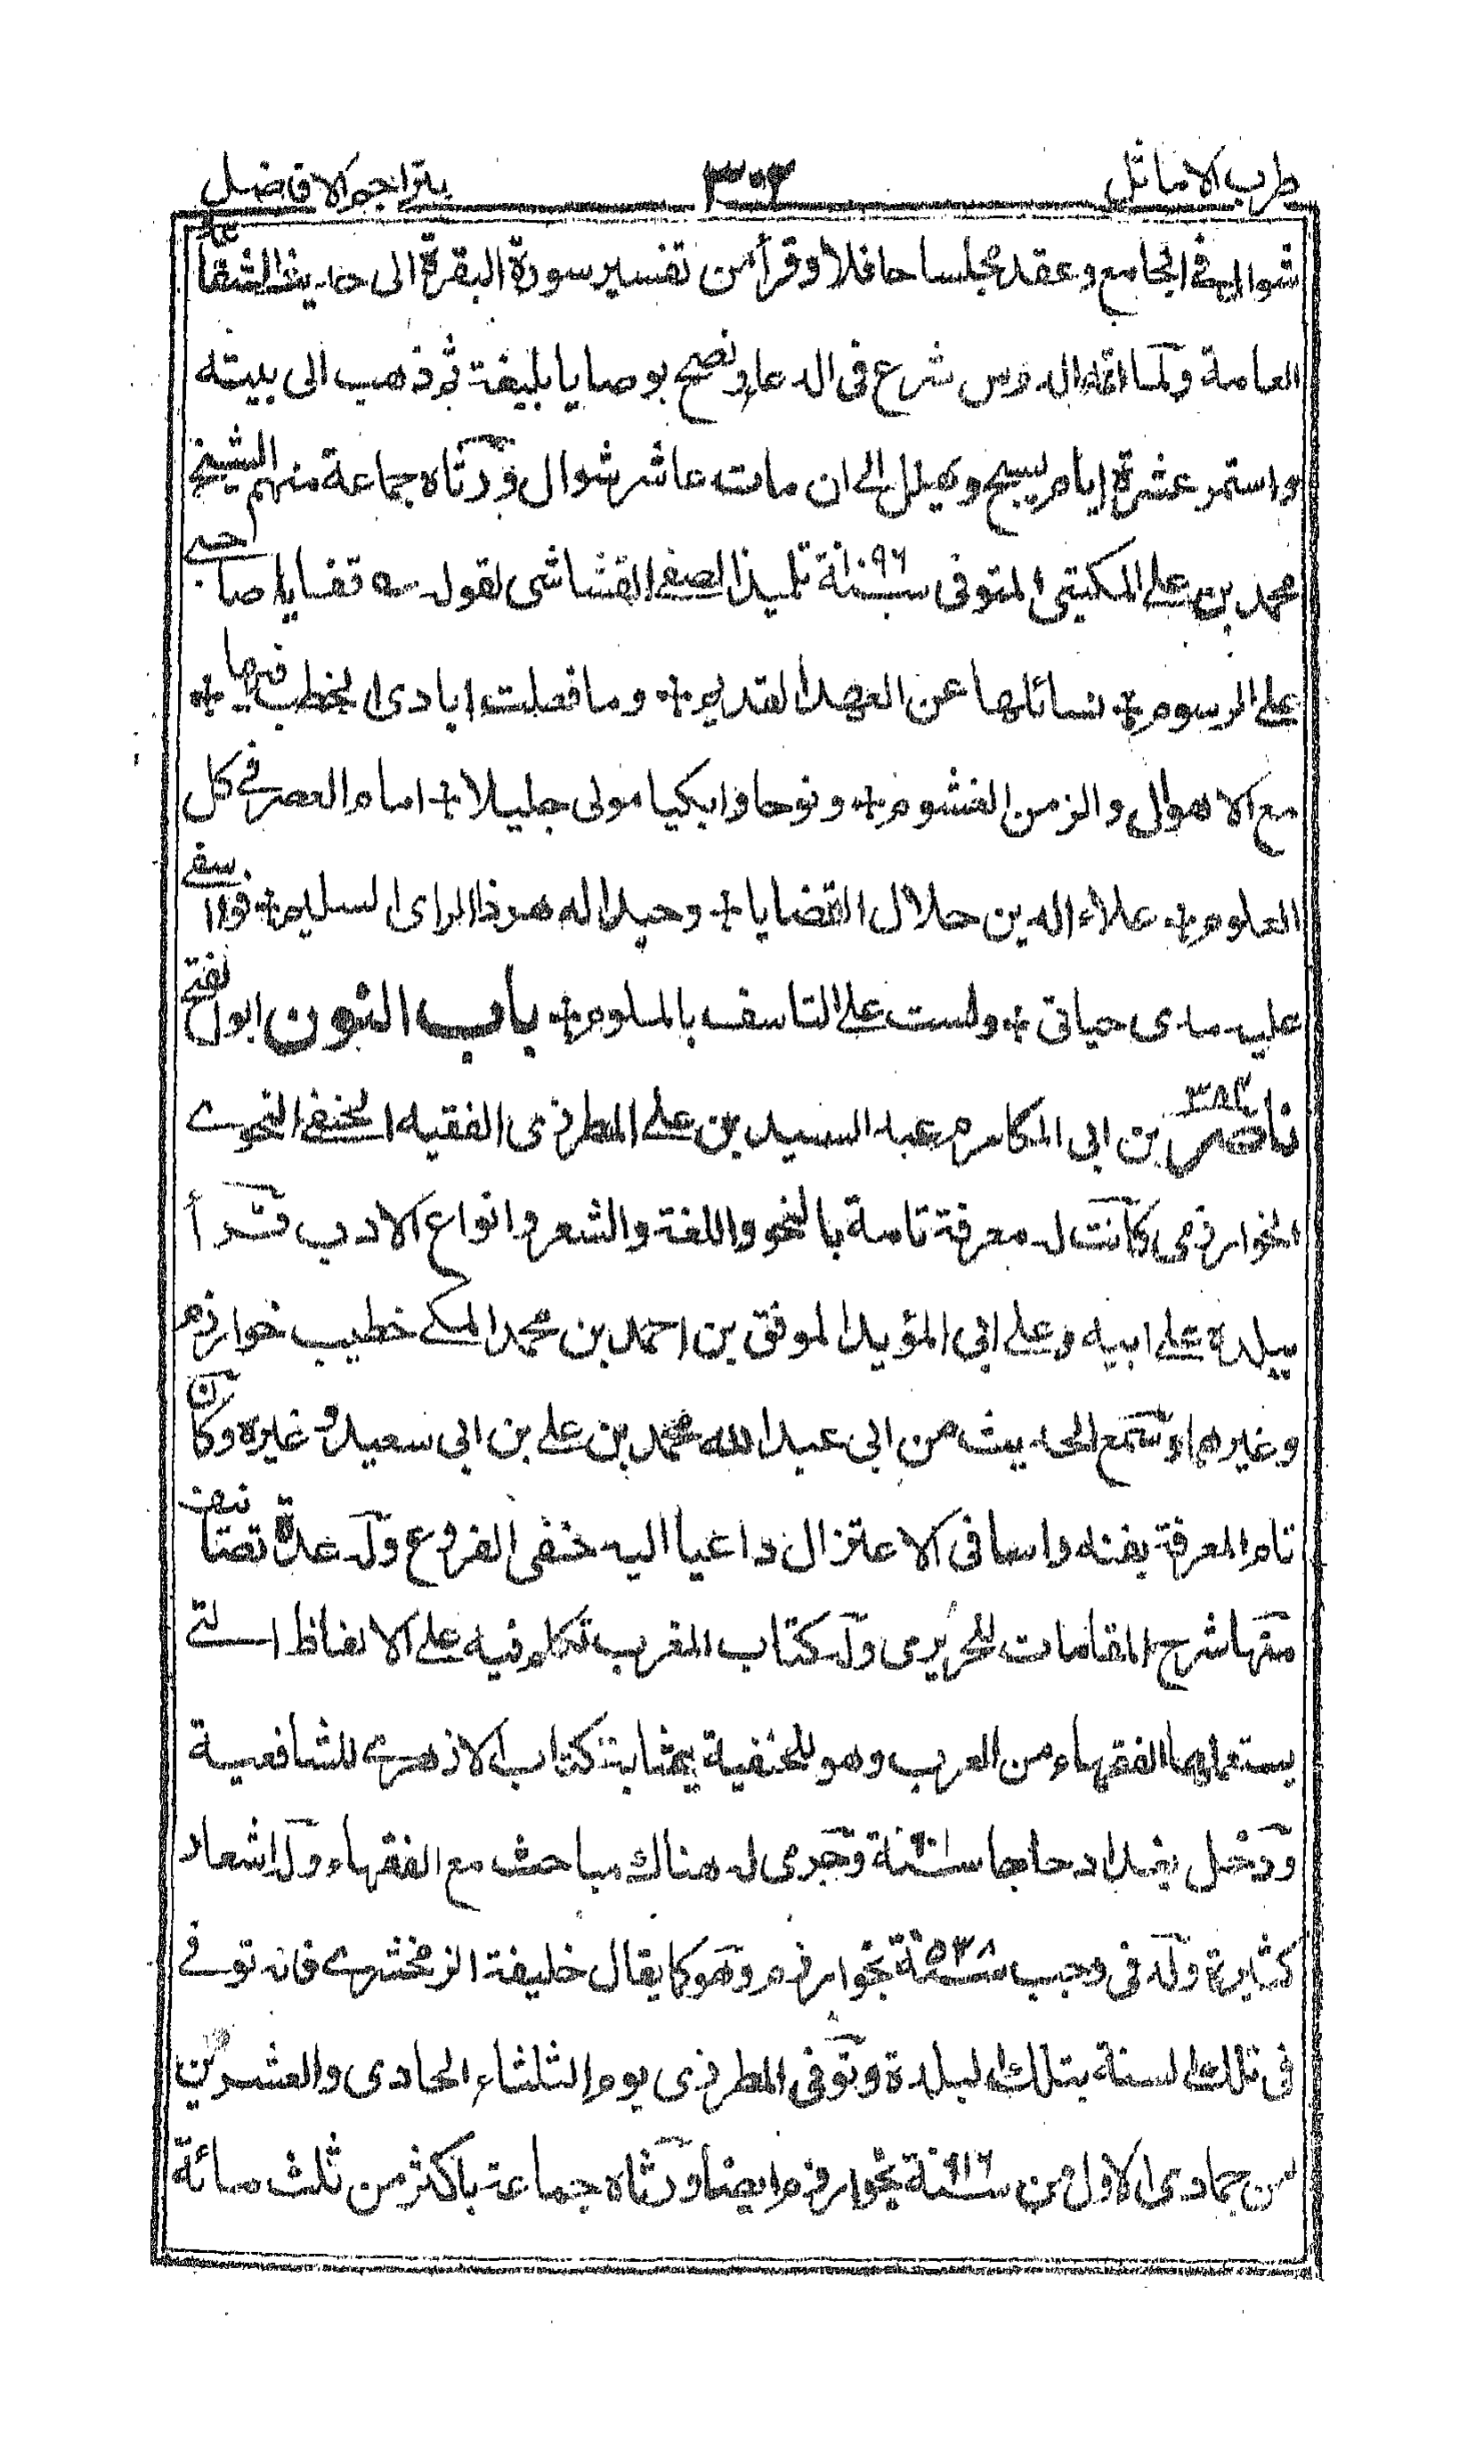 طرب الاماثل ٣٠٣ بتراجم الافاضل
شوال فى الجامع وعقد مجلسا حافلا وقرأ من تفسير سورة البقرة الى حديث الشفاعة
العامة ولما اتم الدرس شرع فى الدعاء ونصح بوصايا بليغة ثم ذهب الى بيته
واستمر عشرة ايام يسبح ويهلل الى ان مات عاشر شوال ورثاه جماعة منهم الشيخ
محمد بن على المكيتبى المتوفى سنة ١٠٩٦ تلميذ الصفى القشاشى بقوله قفا يا صاحبى
على الرسوم + نسائلها عن العهد القديم + وما فعلت ايادى الخطب فيها +
مع الاهوال والزمن الغشوم + ونوحا وابكيا مولى جليلا + امام العصر فى كل
العلوم + علاء الدين حلال القضايا + وحيد اله‍ هو ذا الراى السليم + فوا اسفى
عليه مدى حياتى + ولست على التاسف بالملوم + باب النون ابو الفتح
ناصر ٣٨٣ بن ابى المكارم عبد السيد بن على المطرزى الفقيه الحنفى النحوى
الخوارزمى كانت له معرفة تامة بالنحو واللغة والشعر وانواع الادب قرأ
ببلده على ابيه وعلى ابى المؤيد الموفق بن احمد بن محمد المكى خطيب خوارزم
وغيرهما وسمع الحديث من ابى عبد الله محمد بن على بن ابى سعيد وغيره وكان
تام المعرفة بفنه واسا فى الاعتزال داعيا اليه حنفى الفروع وله عدة تصانيف
منها شرح المقامات للحريرى وله كتاب المغرب تكلم فيه على الالفاظ التى
يستعملها الفقهاء من العرب وهو للحنفية بمثابة كتاب الازهرى للشافعية
ودخل بغداد حاجا سنة ٦٠١ وجرى له هناك مباحث مع الفقهاء وله اشعار
كثيرة ولد فى رجب سنة ٥٣٨ بخوارزم وهو كما يقال خليفة الزمخشرى فانه توفى
فى تلك السنة بتلك البلدة وتوفى المطرزى يوم الثلثاء الحادى والعشرين
من جمادى الاول من سنة ٦١٦ بخوارزم ايضا ورثاه جماعة باكثر من ثلث مائة